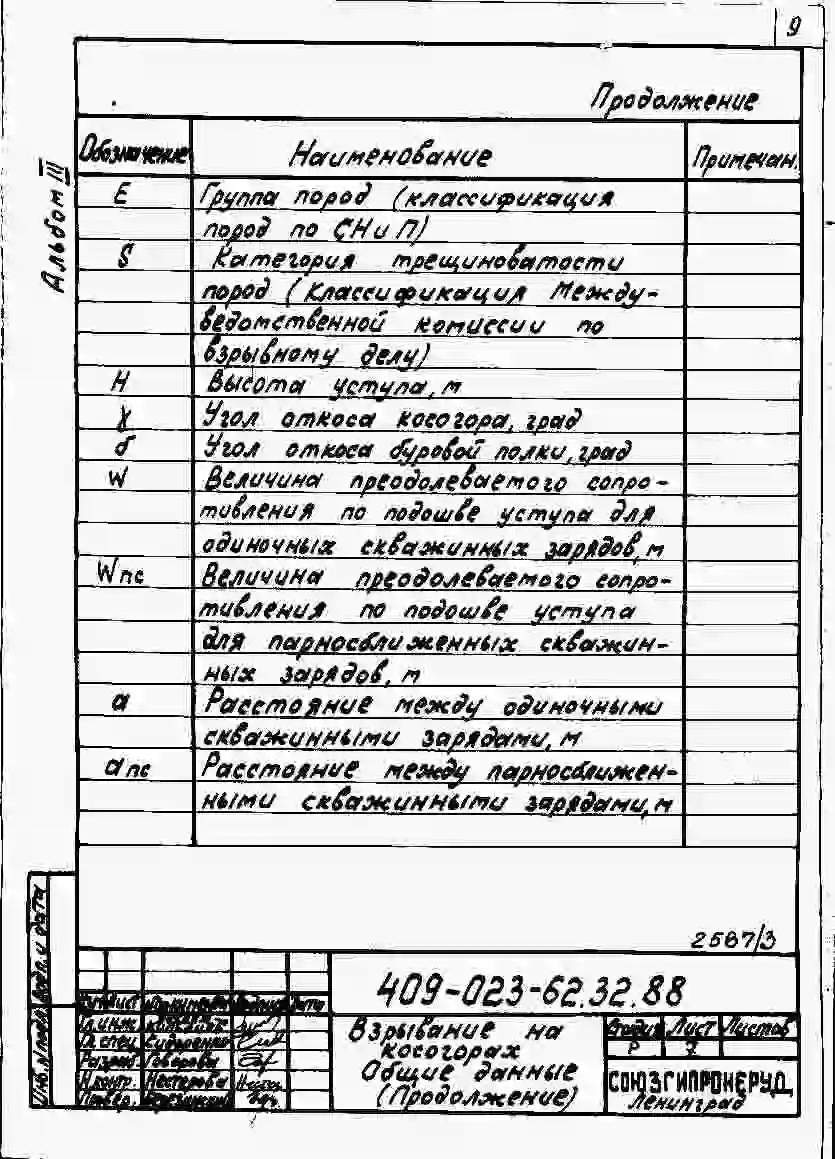 9
Продолжение
Альбом III
Обозначение Наименование Примечан.
E Группа пород (классификация
пород по СНиП)
S Категория трещиноватости
пород (Классификация Между-
ведомственной комиссии по
взрывному делу)
H Высота уступа, м
γ Угол откоса косогора, град
δ Угол откоса буровой полки, град
W Величина преодолеваемого сопро-
тивления по подошве уступа для
одиночных скважинных зарядов, м
Wпс Величина преодолеваемого сопро-
тивления по подошве уступа
для парносближенных скважин-
ных зарядов, м
a Расстояние между одиночными
скважинными зарядами, м
aпс Расстояние между парносближен-
ными скважинными зарядами, м
2587/3
409-023-62.32.88
Взрывание на
косогорах
Общие данные
(Продолжение)
Стадия Лист Листов
Р 7
СОЮЗГИПРОНЕРУД
Ленинград
Лист Дата
Гл.инж.
Гл.спец. Сидоренко
Разраб. Говорова
Н.контр. Нестерова
Провер.
Инв.Nподл. Подп. и дата